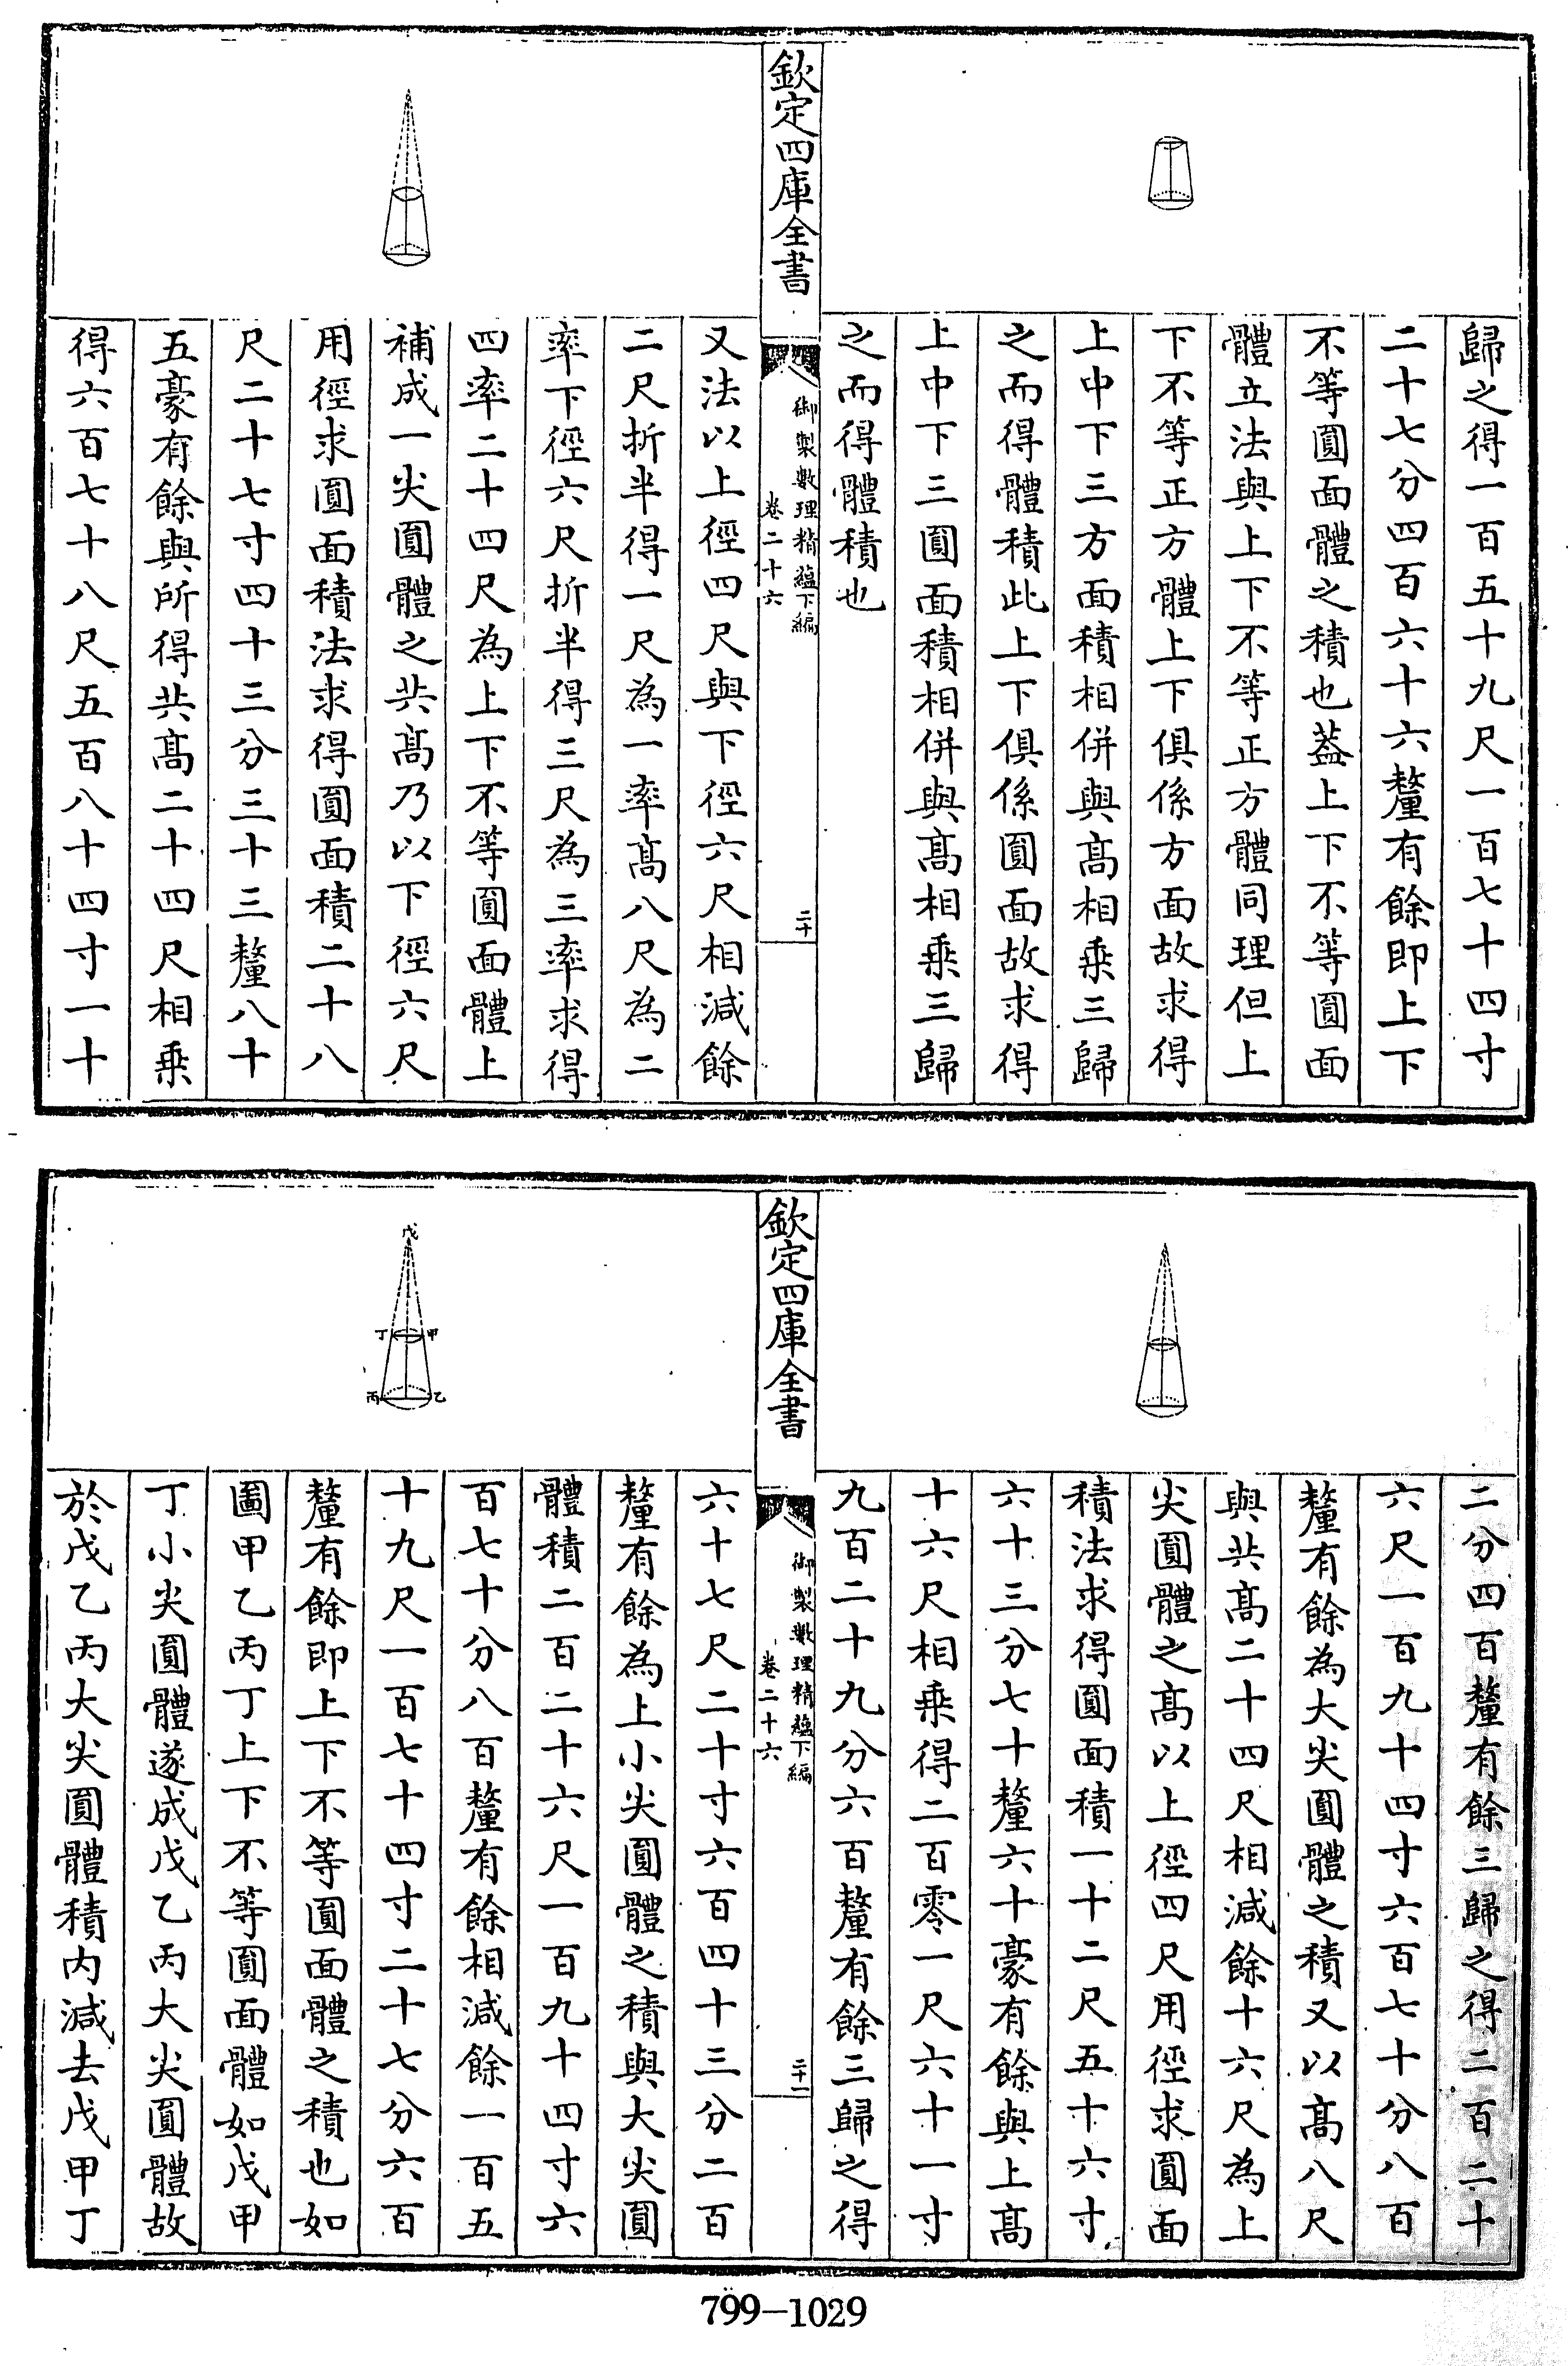 歸之得一百五十九尺一百七十四寸
二十七分四百六十六釐有餘即上下
不等圓面體之積也葢上下不等圓面
體立法與上下不等正方體同理但上
下不等正方體上下俱係方面故求得
上中下三方面積相併與髙相乘三歸
之而得體積此上下俱係圓面故求得
上中下三圓面積相併與髙相乘三歸
之而得體積也
欽定四庫全書
御製數理精蘊下編
卷二十六
二十
又法以上徑四尺與下徑六尺相減餘
二尺折半得一尺為一率髙八尺為二
率下徑六尺折半得三尺為三率求得
四率二十四尺為上下不等圓面體上
補成一尖圓體之共髙乃以下徑六尺
用徑求圓面積法求得圓面積二十八
尺二十七寸四十三分三十三釐八十
五豪有餘與所得共髙二十四尺相乘
得六百七十八尺五百八十四寸一十
二分四百釐有餘三歸之得二百二十
六尺一百九十四寸六百七十分八百
釐有餘為大尖圓體之積又以髙八尺
與共髙二十四尺相減餘十六尺為上
尖圓體之髙以上徑四尺用徑求圓面
積法求得圓面積一十二尺五十六寸
六十三分七十釐六十豪有餘與上髙
十六尺相乘得二百零一尺六十一寸
九百二十九分六百釐有餘三歸之得
欽定四庫全書
御製數理精蘊下編
卷二十六
二十一
六十七尺二十寸六百四十三分二百
釐有餘為上小尖圓體之積與大尖圓
體積二百二十六尺一百九十四寸六
百七十分八百釐有餘相減餘一百五
十九尺一百七十四寸二十七分六百
釐有餘即上下不等圓面體之積也如
圖甲乙丙丁上下不等圓面體如戊甲
丁小尖圓體遂成戊乙丙大尖圓體故
於戊乙丙大尖圓體積内減去戊甲丁
戊
丁
甲
丙
乙
799-1029